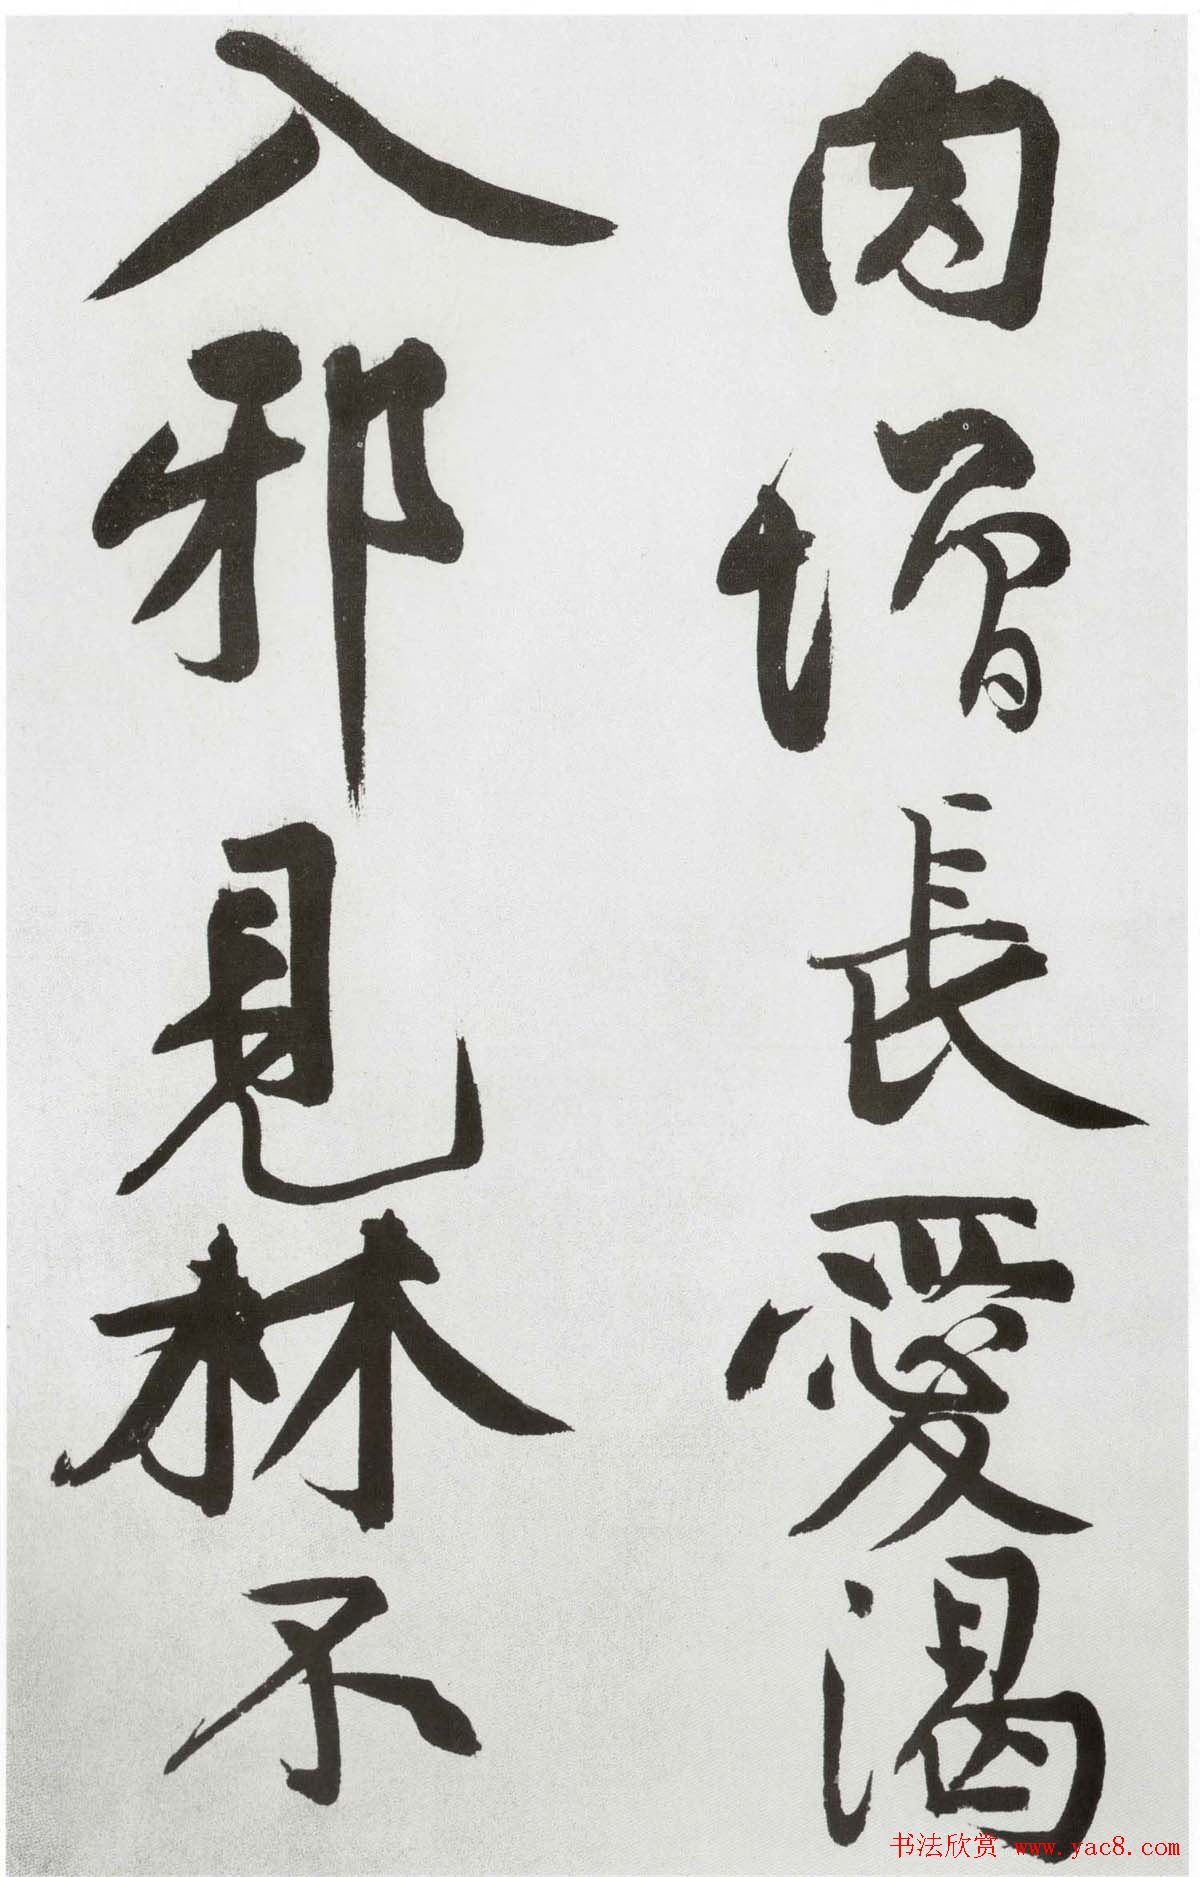 肉增長愛渴
入邪見林不
书法欣赏 www.yac8.com